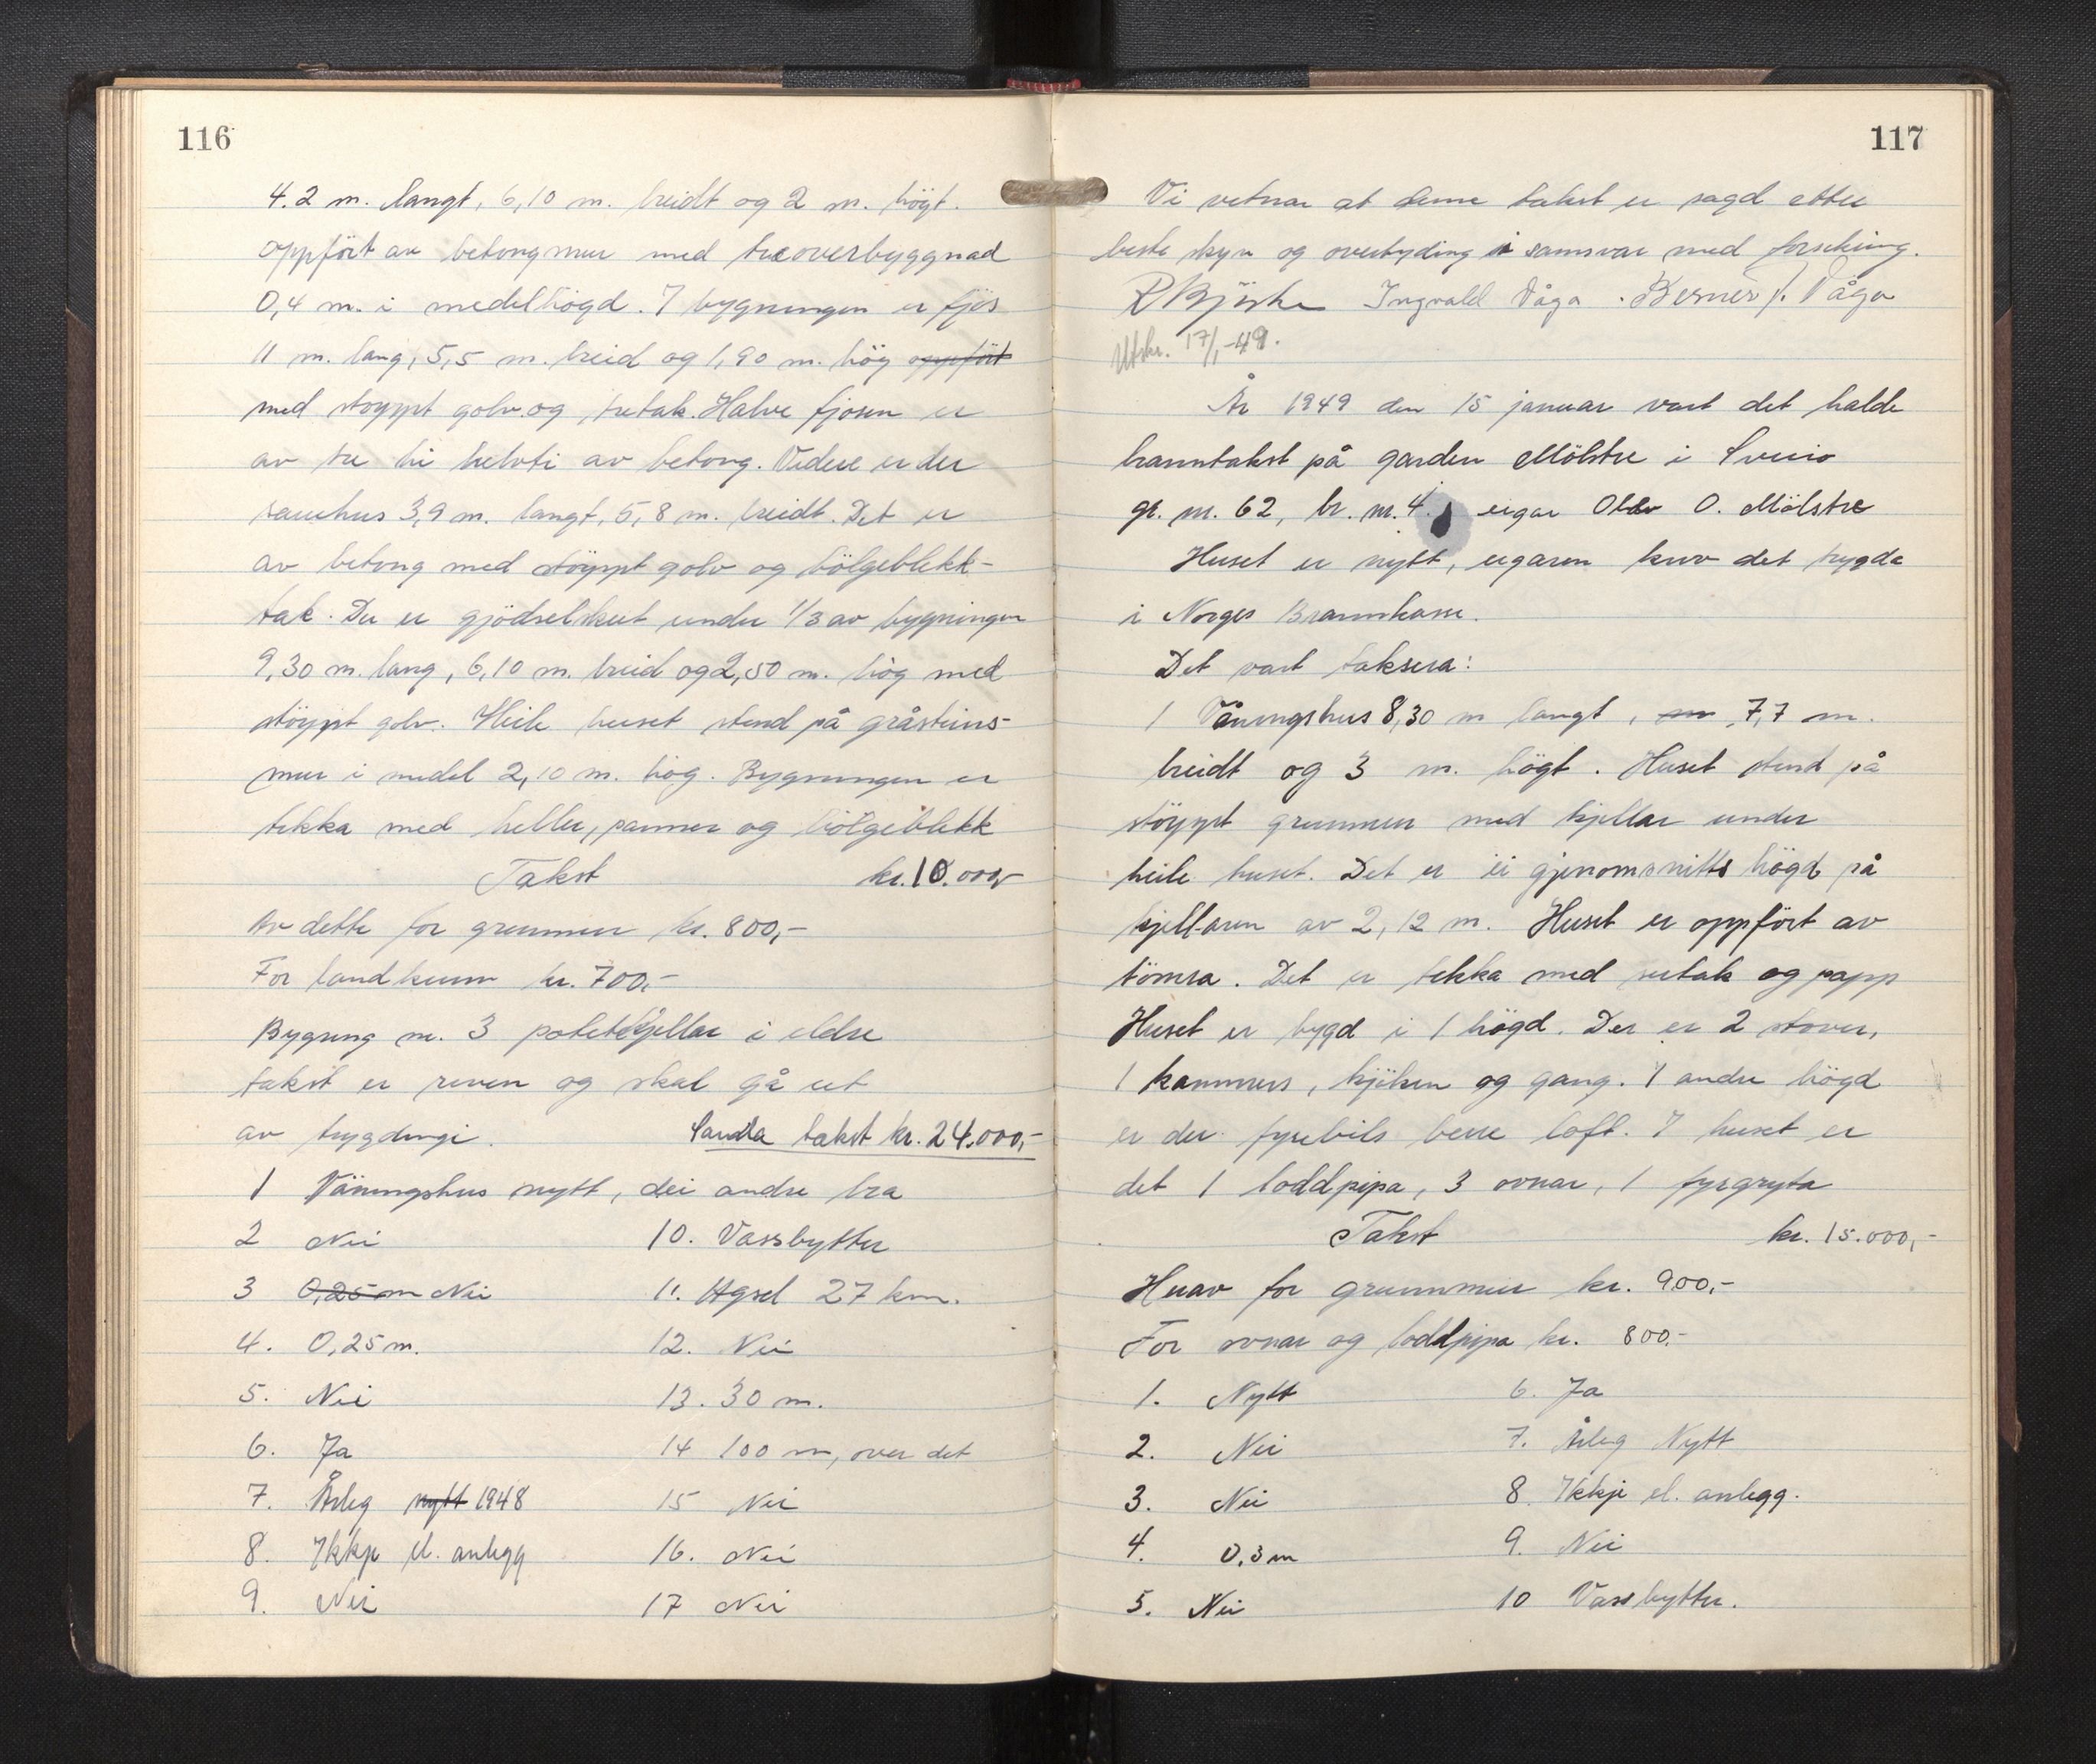 116
4.2 m. langt, 6,10 m. breidt og 2 m. högt.
oppfört av betongmur med treoverbyggnad
0,4 m. i medelhögd. I bygningen er fjös
11 m. lang, 5,5 m. breid og 1,90 m. hög oppfört
med stöypt golv og tretak. Halve fjosen er
av tre hi helvti av betong. Videre er der
sauehus 3,9 m. langt, 5,8 m. breidt. Det er
av betong med stöypt golv og bölgeblekk-
tak. Der er gjödselskut under 1/3 av bygningen
9,30 m. lang, 6,10 m. breid og 2,50 m. hög med
stöypt golv. Heile huset stend på gråsteins-
mur i medel 2,10 m. hög. Bygningen er
tekka med heller, panner og bölgeblekk
Takst kr. 10.000,-
Av dette for grunnmur kr. 800,-
For landkum kr. 700,-
Bygning nr. 3 potetkjellar i eldre
takst er reven og skal gå ut
av trygdingi. Samla takst kr. 24.000,-
1 Våningshus nytt, dei andre bra
2 Nei 10. Vassbytter
3 0,25 m Nei 11. Hgsd 27 km.
4. 0,25 m. 12. Nei
5. Nei 13. 30 m.
6. Ja 14 100 m, over det
7. Årleg nytt 1948 15 Nei
8. Ikkje el. anlegg 16. Nei
9. Nei 17 Nei
117
Vi vetnar at denne takst er sagd etter
beste skyn og overtyding i samsvar med forsikring.
R Björke Ingvald Våga . Berner J. Våga
Utskr. 17/1-49.
År 1949 den 15 januar vart det halde
branntakst på garden Mölstre i Sveio
gr. nr. 62, br. nr. 4. eigar Olav O. Mölstre
Huset er nytt, eigaren krev det trygda
i Norges Brannkasse.
Det vart taksera:
1 Våningshus 8,30 m langt, m 7,7 m.
breidt og 3 m. högt. Huset stend på
stöypt grunnmur med kjellar under
heile huset. Det er ei gjenomsnitts högd på
kjellaren av 2,12 m. Huset er oppfört av
tömra. Det er tekka med sutak og papp
Huset er bygd i 1 högd. Der er 2 stover,
1 kammers, kjöken og gang. I andre högd
er der fyrebils berre loft. I huset er
det 1 loddpipa, 3 ovnar, 1 fyrgryta
Takst kr. 15.000,-
Herav for grunnmur kr. 900,-
For ovnar og loddpipa kr. 800.-
1. Nytt 6. Ja
2. Nei 7. Årleg Nytt
3. Nei 8. Ikkje el. anlegg.
4. 0,3 m 9. Nei
5. Nei 10 Vassbytter.